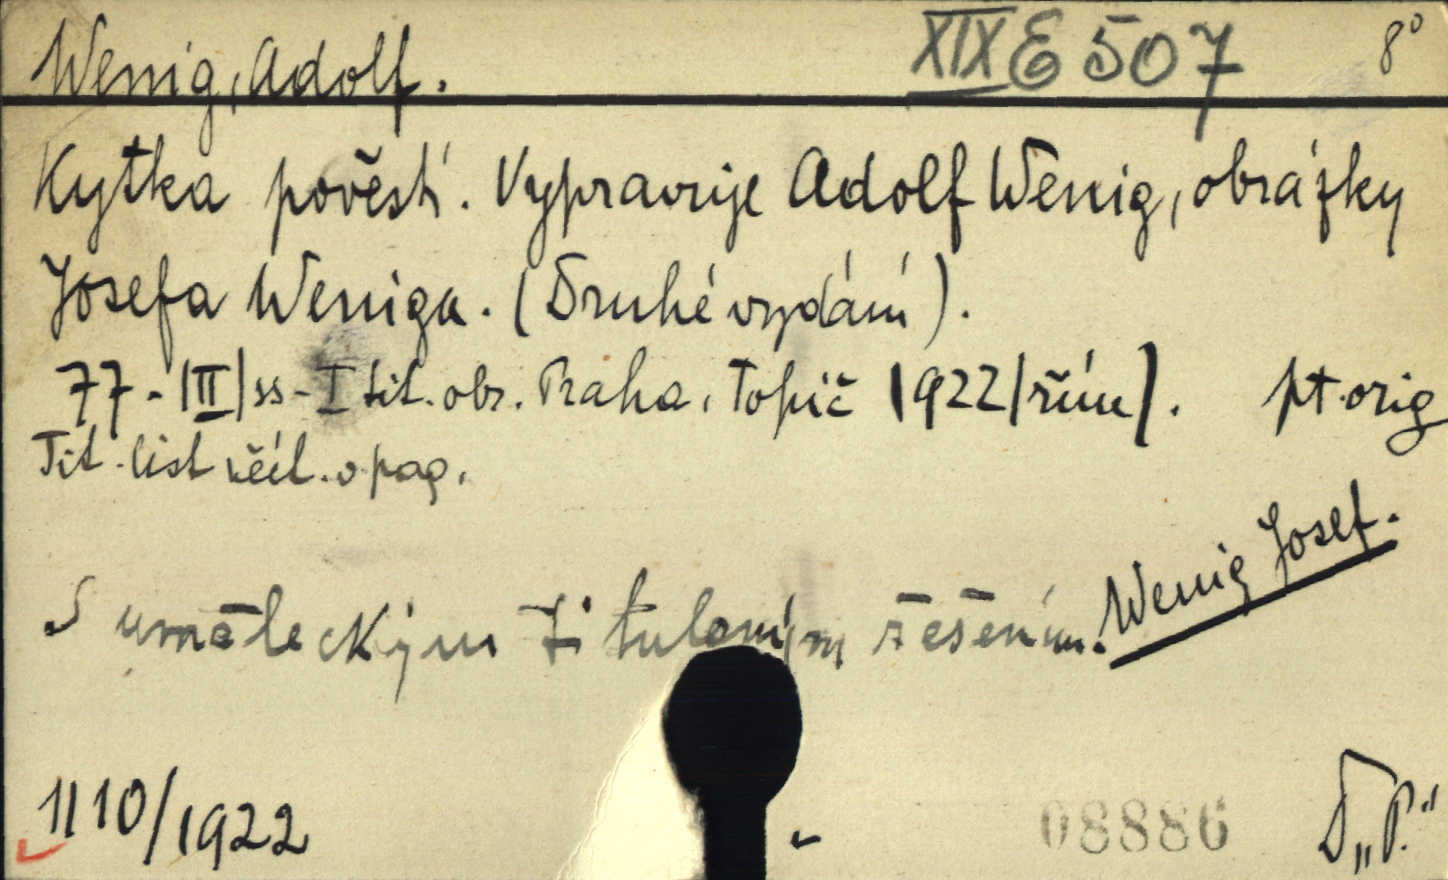 Wenig, Adolf.
XIX E 507
8°
Kytka pověstí. Vypravuje Adolf Wenig, obrázky
Josefa Weniga. (Druhé vydání).
77-|III|ss-I tit. obr. Praha, Topič 1922/řím/. pt. orig
Tit. list včít. v pag.
S uměleckým titulovým řešením.
Wenig Josef.
1110/1922
08886
D„P."